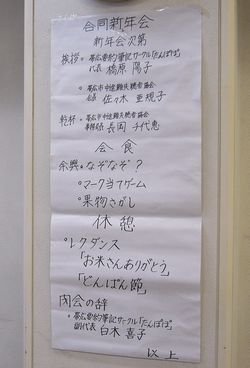 合同新年会
新年会次第
挨拶 ◦ 帯広要約筆記サークル「たんぽぽ」
代表 橋原 陽子
◦ 帯広市中途難失聴者協会
会長 佐々木 亜規子
乾杯 ◦ 帯広市中途難失聴者協会
事務局長 長岡 千代恵
会食
余興 ◦ なぞなぞ？
◦ マーク当てゲーム
◦ 果物さがし
休憩
◦ レクダンス
「お米さんありがとう」
「どんぱん節」
閉会の辞
帯広要約筆記サークル「たんぽぽ」
副代表 白木 喜子
以上